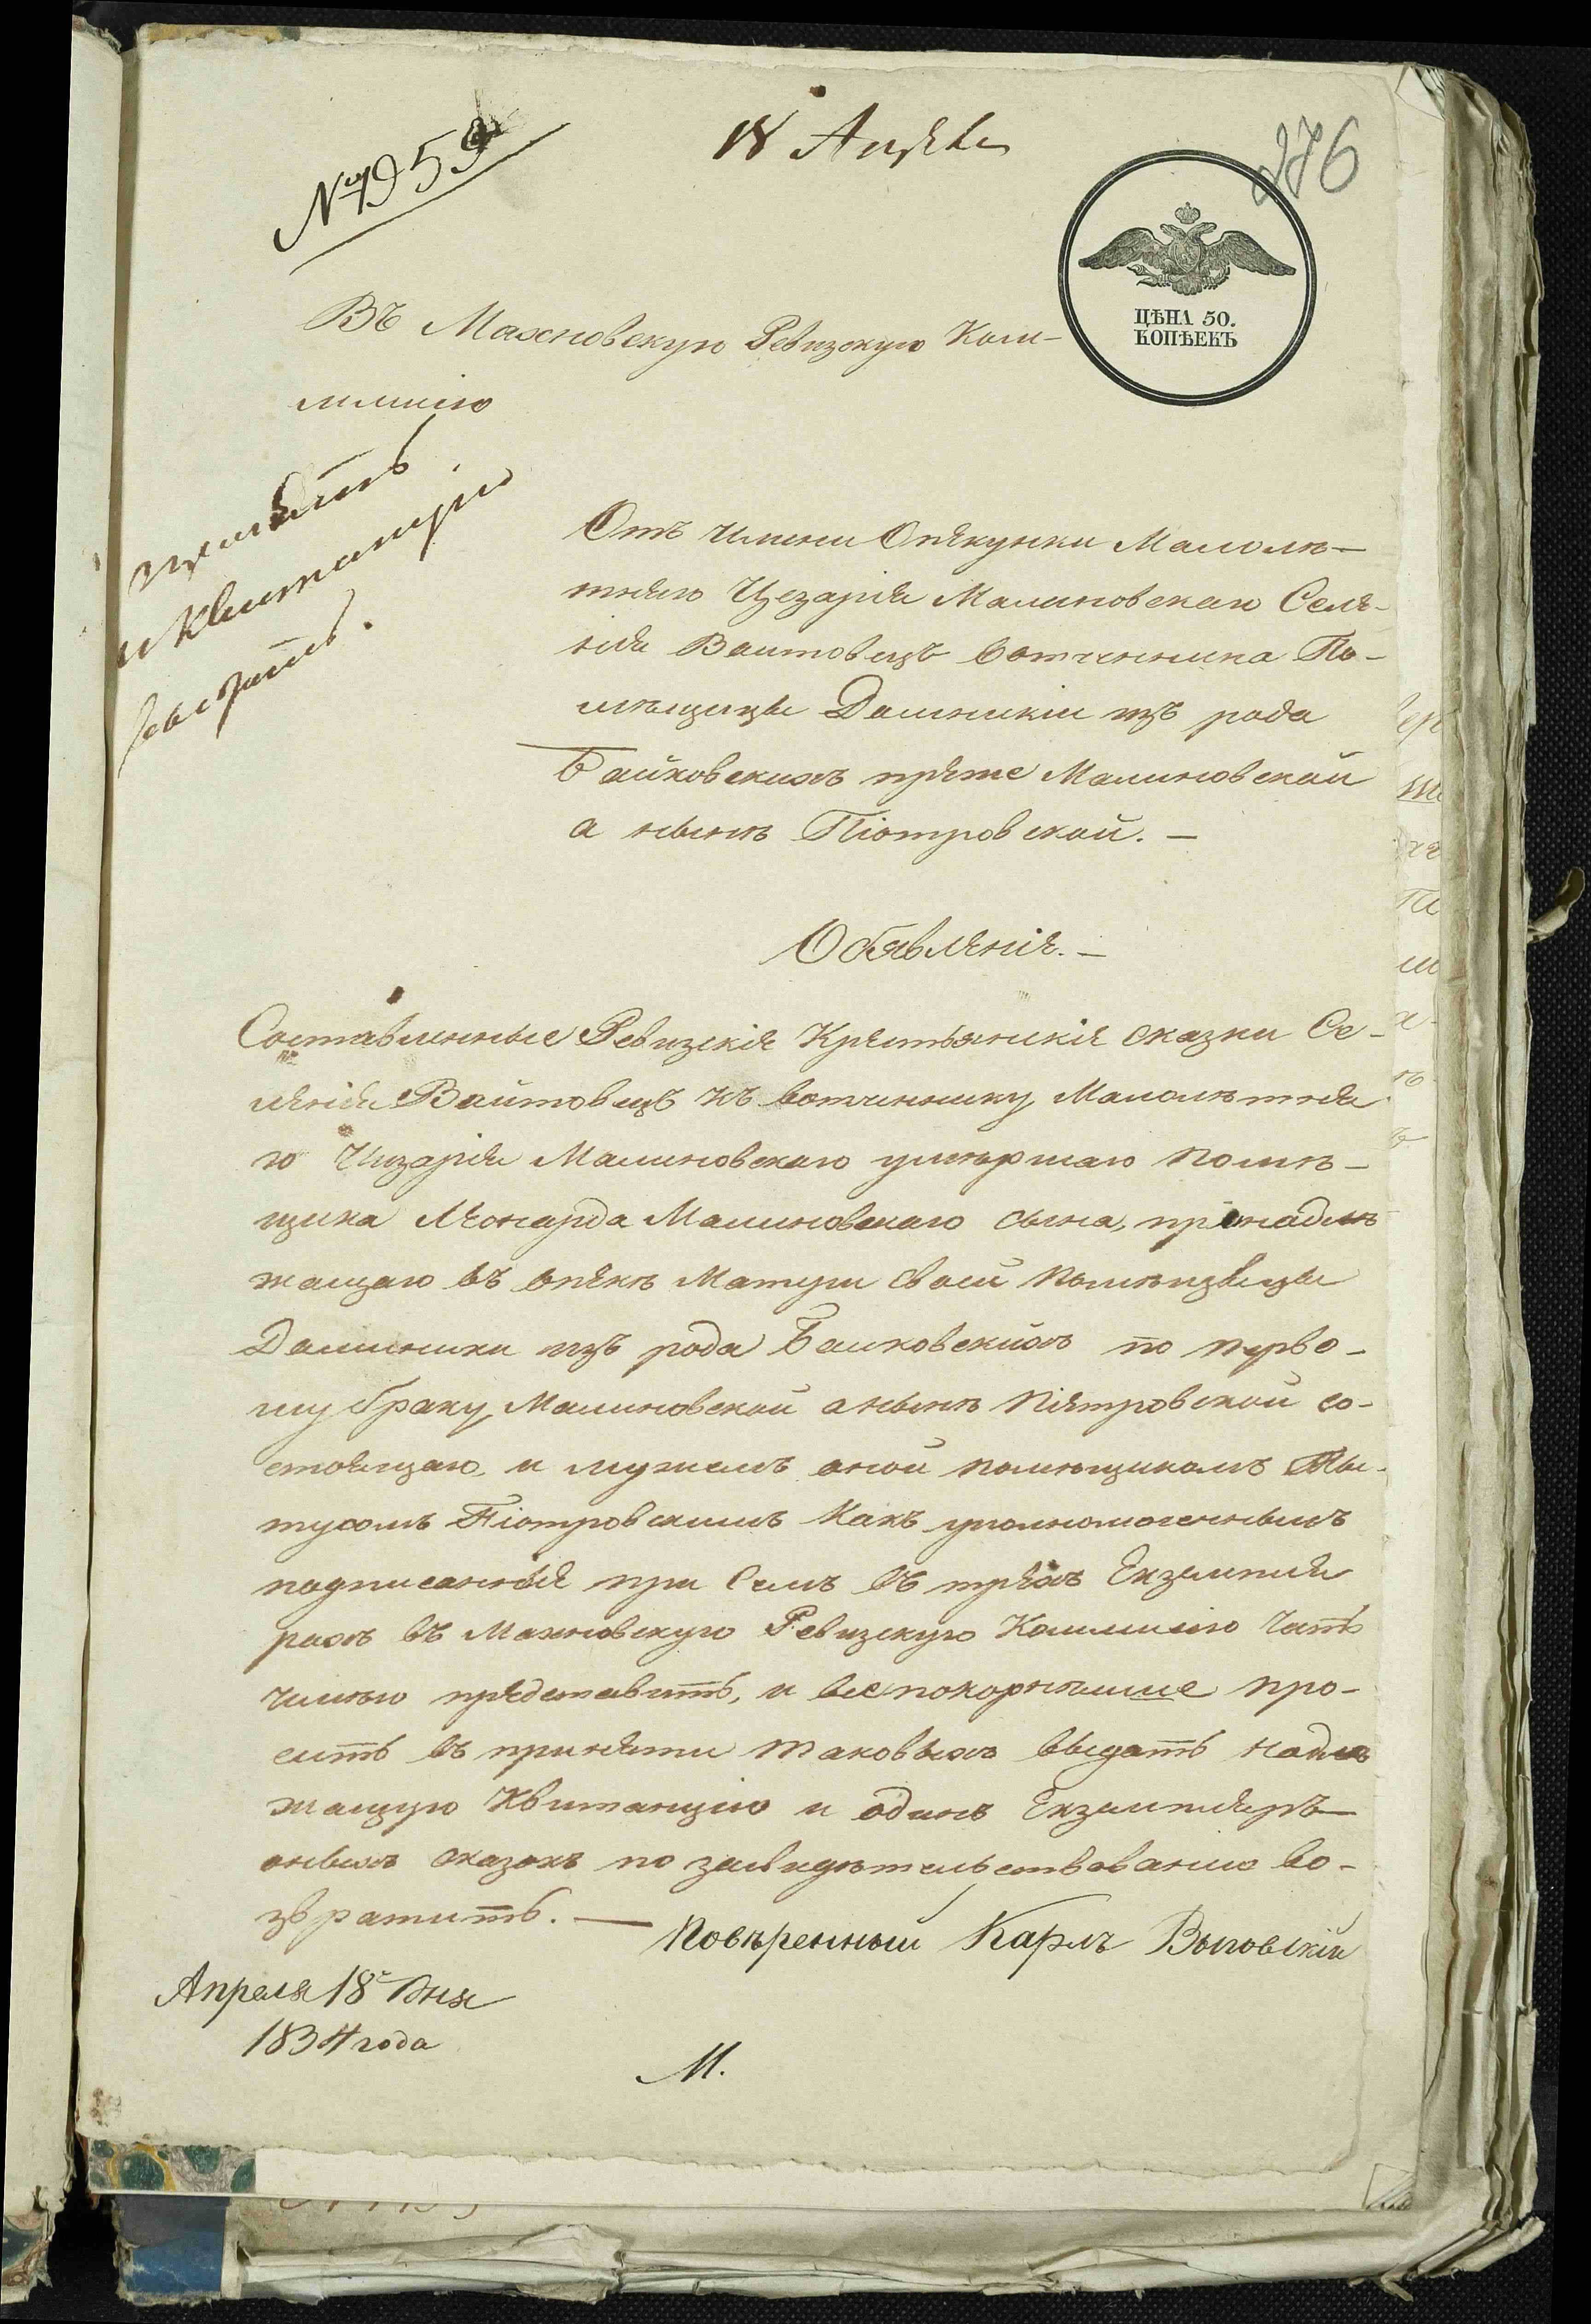 № 1959
18 Апреля
276
ЦѢНА 50.
КОПѢЕКЪ
Въ Махновскую Ревизскую Ком-
мисію
и квитанцию
Отъ имени Опекунки Малолѣ-
тняго Цезарія Малиновскаго Селе-
нія Войтовецъ вотчинника По-
мѣщицы Доминикіи изъ рода
Байковскихъ преже Малиновской
а нынѣ Піотровской. —
Обявленіе. —
Составленные Ревизскіе Крестьянскіе сказки Се-
ленія Войтовецъ къ вотчиннику Малолѣтня
го Цизарія Малиновскаго умершаго помѣ-
щика Леонарда Малиновскаго сына, принадлѣ
жащаго въ опекѣ Матери своей помѣщицы
Доминики изъ рода Байковскихъ по перво-
му браку Малиновской а нынѣ Піетровской со-
стоящаго, и мужемъ оной помѣщикомъ
Піотровскимъ какъ уполномоченнымъ
подписанные при семъ въ трехъ Екземпля
рахъ въ Махновскую Ревизскую Коммисію честь
имѣю представить, и всепокорнѣйше про-
сить въ принятіи таковыхъ выдать надлѣ
жащую Квитанцію и одинъ Екземпляръ
оныхъ сказокъ по засвидѣтельствованію во-
звратить. —
Повѣренный Карлъ Выговскій
Апреля 18 дня
1834 года
М.